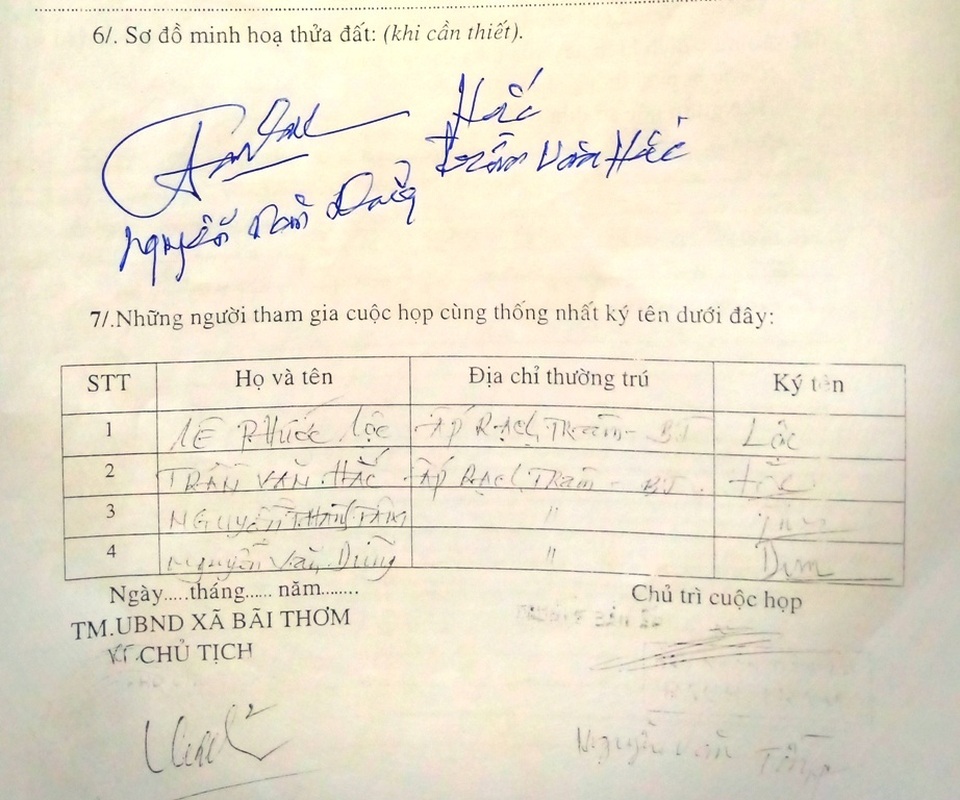 6/. Sơ đồ minh hoạ thửa đất: (khi cần thiết).
Hắc
Trần Văn Hắc
Nguyễn Văn Dũng
7/.Những người tham gia cuộc họp cùng thống nhất ký tên dưới đây:
STT Họ và tên Địa chỉ thường trú Ký tên
1 LÊ PHƯỚC Lộc ẤP RẠCH Tràm - BT Lộc
2 TRẦN VĂN HẮC ẤP RẠCH Tràm - BT Hắc
3 NGUYỄN THANH TÂM "
4 Nguyễn Văn Dũng " Dũng
Ngày.....tháng...... năm........ Chủ trì cuộc họp
TM.UBND XÃ BÃI THƠM
KT.CHỦ TỊCH
Nguyễn Văn